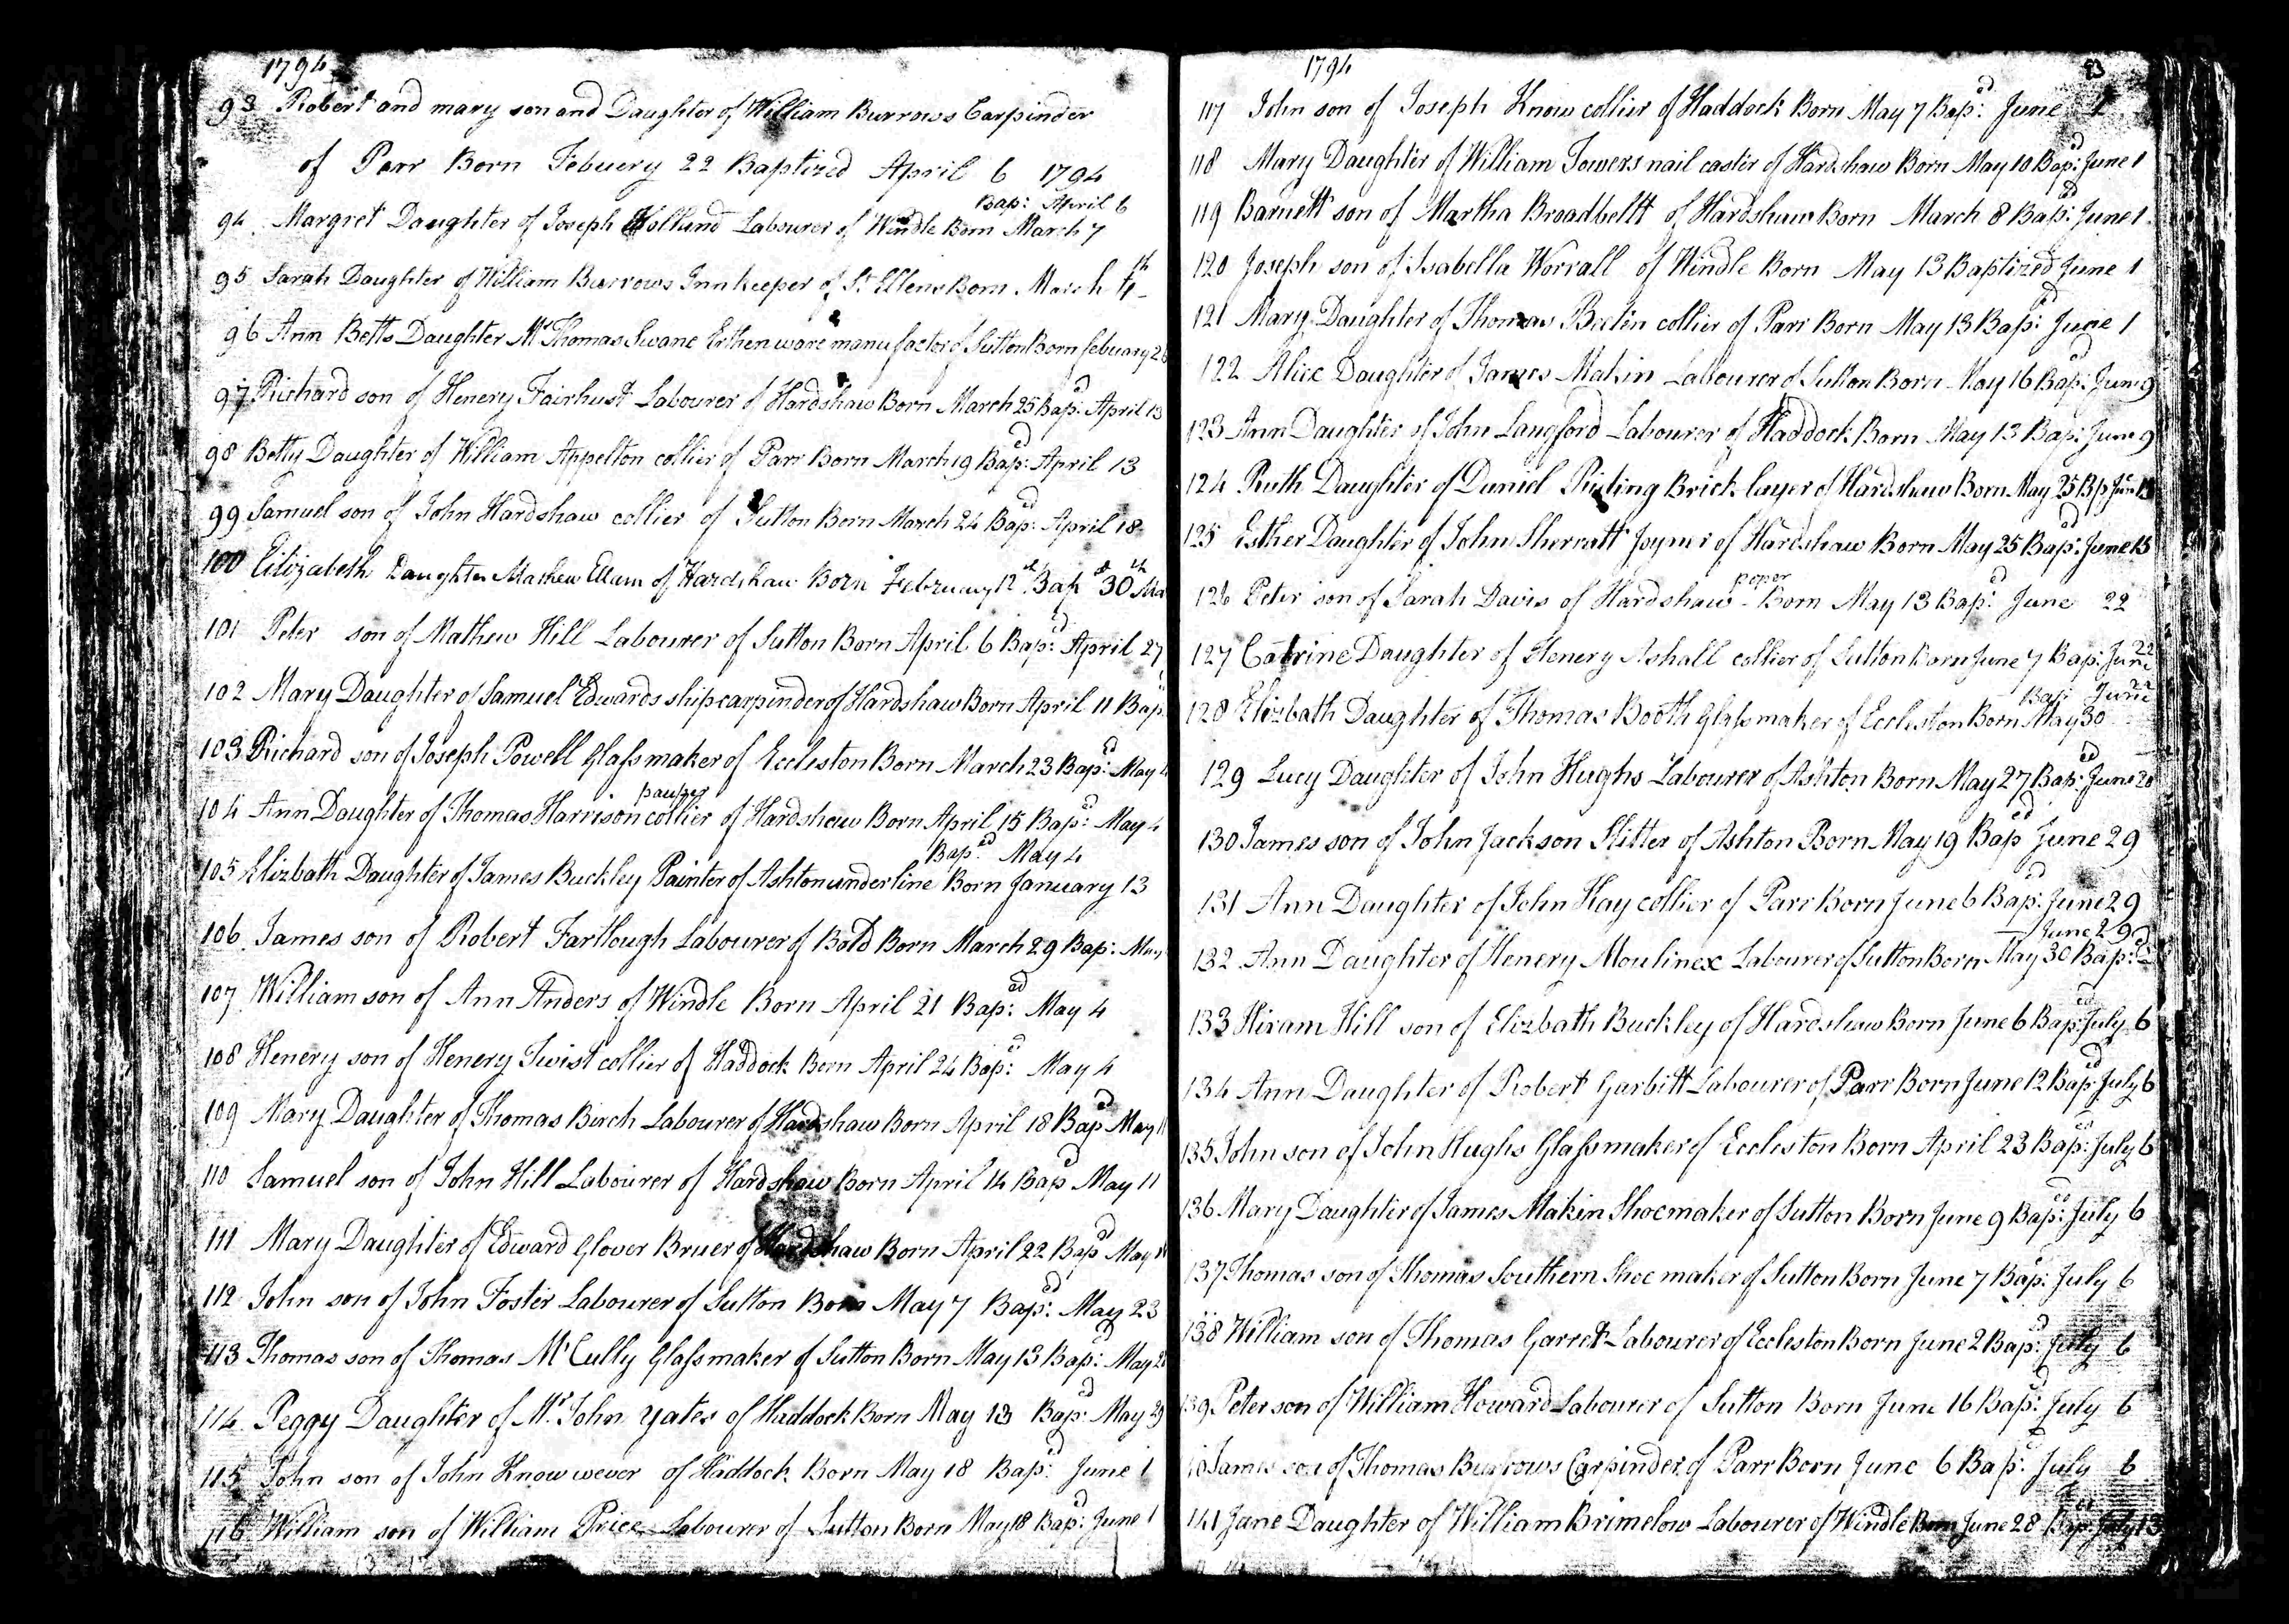 1794
93 Robert and mary son and Daughter of William Burrows Carpinder
of Parr Born Febuery 22 Baptized April 6 1794
Bap: April 6
94 Margret Daughter of Joseph Holland Labourer of Windle Born March 7
95 Sarah Daughter of William Burrows Innkeeper of St Ellens Born March 4th
96 Ann Betts Daughter Mr Thomas Swane Erthenware manufactor of Sutton Born febuary
97 Richard son of Henery Fairhust Labourer of Hardshaw Born March 25 Bap:d April 13
98 Betty Daughter of William Appelton collier of Parr Born March 19 Bap:ed April 13
99 Samuel son of John Hardshaw collier of Sutton Born March 24 Bap:ed April 18
100 Elizabeth Daughter Mathew Ellum of Hardshaw Born February 12th Bapd 30th
101 Peter son of Mathew Hill Labourer of Sutton Born April 6 Bap:ed April 27
102 Mary Daughter of Samuel Edwards shipcarpinder of Hardshaw Born April 11 Bap:
103 Richard son of Joseph Powell Glassmaker of Eccleston Born March 23 Bap:ed May 4
pauper
104 Ann Daughter of Thomas Harrison collier of Hardshaw Born April 15 Bap:ed May 4
Bap:ed May 4
105 Elizbath Daughter of James Buckley Painter of Ashtonunderline Born January 13
106 James son of Robert Farllough Labourer of Bold Born March 29 Bap: May
107 William son of Ann Anders of Windle Born April 21 Bap:ed May 4
108 Henery son of Henery Twist collier of Haddock Born April 24 Bap:ed May 4
109 Mary Daughter of Thomas Birch Labourer of Hardshaw Born April 18 Baped May 11
110 Samuel son of John Hill Labourer of Hardshaw Born April 14 Baped May 11
111 Mary Daughter of Edward Glover Bruer of Hardshaw Born April 22 Baped May 11
112 John son of John Foster Labourer of Sutton Born May 7 Bap:ed May 23
113 Thomas son of Thomas McCully Glassmaker of Sutton Born May 13 Bap:ed May
114 Peggy Daughter of Mr John Yates of Haddock Born May 13 Bap:ed May 29
115 John son of John Know wever of Haddock Born May 18 Bap:ed June 1
116 William son of William Price Labourer of Sutton Born May 18 Bap:ed June 1
1794
93
117 John son of Joseph Know collier of Haddock Born May 7 Bap:ed June 1
118 Mary Daughter of William Towers nail caster of Hardshaw Born May 10 Bap:ed June 1
119 Barnett son of Martha Broadbellt of Hardshaw Born March 8 Bap:ed June 1
120 Joseph son of Isabella Worrall of Windle Born May 13 Baptized June 1
121 Mary Daughter of Thomas Beelin collier of Parr Born May 13 Bap:ed June 1
122 Alice Daughter of James Makin Labourer of Sutton Born May 16 Bap:ed June 9
123 Ann Daughter of John Langford Labourer of Haddock Born May 13 Bap:ed June 9
124 Ruth Daughter of Daniel Brick layer of Hardshaw Born May 25 Bp June
125 Esther Daughter of John Sherratt Joyner of Hardshaw Born May 25 Bap:ed June 15
poper
126 Peter son of Sarah Davis of Hardshaw Born May 13 Bap:ed June 22
127 Catrine Daughter of Henery Ashall collier of Sutton Born June 7 Bap: June 22
Bap: June 22
128 Elizbath Daughter of Thomas Booth Glassmaker of Eccleston Born May 30
129 Lucy Daughter of John Hughs Labourer of Ashton Born May 27 Bap:ed June
130 James son of John Jackson Hitter of Ashton Born May 19 Baped June 29
131 Ann Daughter of John Kay collier of Parr Born June 6 Bap:ed June 29
June 29
132 Ann Daughter of Henery Moulinex Labourer of Sutton Born May 30 Bap:ed
133 Hiram Hill son of Elizbath Buckley of Hardshaw Born June 6 Bap:ed July 6
134 Ann Daughter of Robert Garbitt Labourer of Parr Born June 12 Bap:ed July 6
135 John son of John Hughs Glassmaker of Eccleston Born April 23 Bap:ed July 6
136 Mary Daughter of James Makin Shoemaker of Sutton Born June 9 Bap:ed July 6
137 Thomas son of Thomas Southern Shoe maker of Sutton Born June 7 Bap:ed July 6
138 William son of Thomas Garret Labourer of Eccleston Born June 2 Bap:ed July 6
139 Peter son of William Howard Labourer of Sutton Born June 16 Bap:ed July 6
James son of Thomas Burrows Carpinder of Parr Born June 6 Bap:ed July 6
141 Jane Daughter of William Brimelow Labourer of Windle Born June 28 Bap:ed July 13